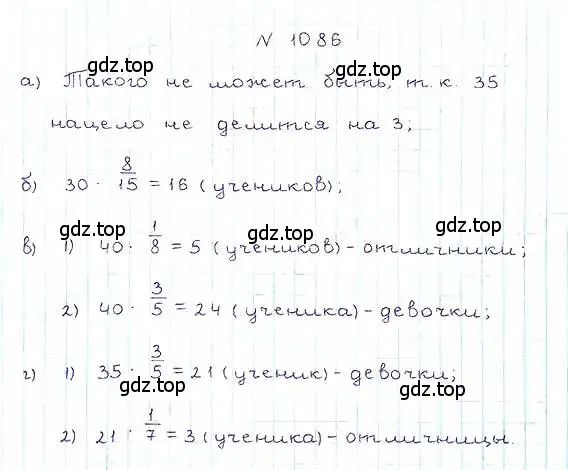 № 1086
gdz.top gdz.top
а) Такого не может быть, т.к. 35
нацело не делится на 3;
б) 30 · 8/15 = 16 (учеников);
gdz.top gdz.top
в) 1) 40 · 1/8 = 5 (учеников) - отличники;
2) 40 · 3/5 = 24 (ученика) - девочки;
г) 1) 35 · 3/5 = 21 (ученик) - девочки;
gdz.top gdz.top
2) 21 · 1/7 = 3 (ученика) - отличницы.